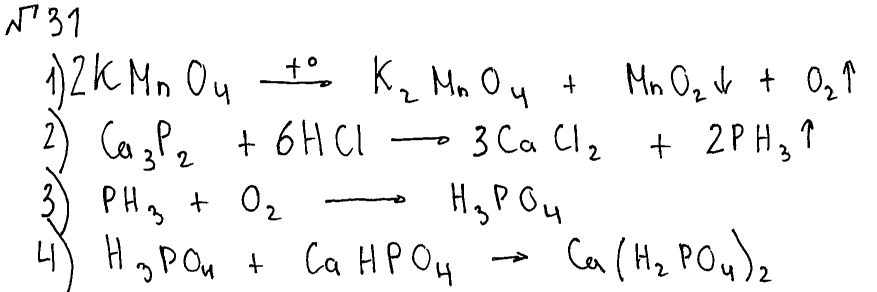 № 31
1) 2KMnO₄ →(t°) K₂MnO₄ + MnO₂↓ + O₂↑
2) Ca₃P₂ + 6HCl → 3CaCl₂ + 2PH₃↑
3) PH₃ + O₂ → H₃PO₄
4) H₃PO₄ + CaHPO₄ → Ca(H₂PO₄)₂